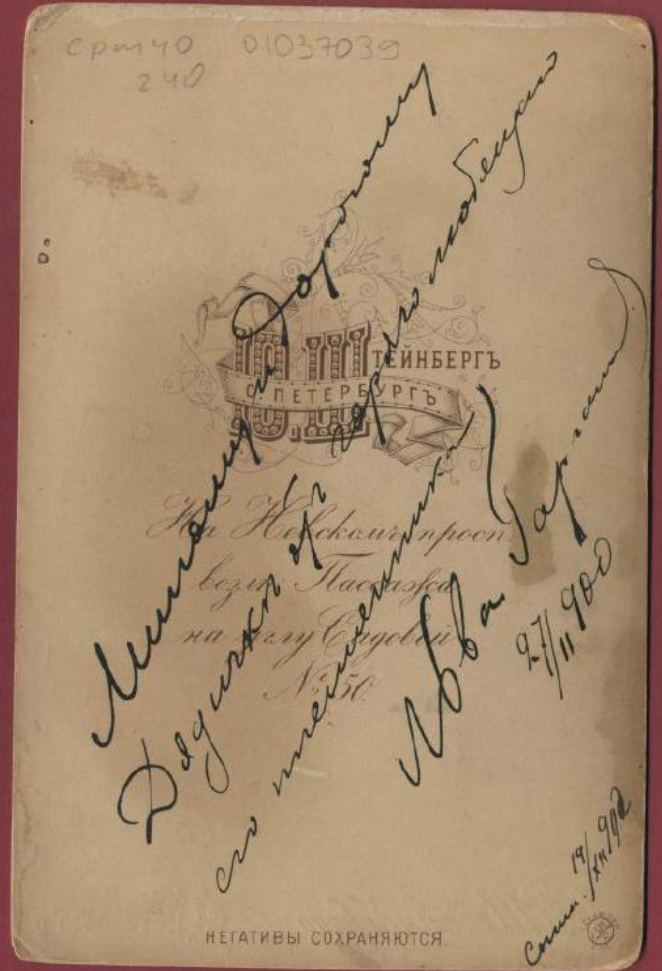 срт40 01037039
240
Ю. ШТЕЙНБЕРГЪ
С. ПЕТЕРБУРГЪ
На Невскомъ просп.
возлѣ Пассажа
на углу Садовой
№ 50.
Милому и Дорогому
Дядичкѣ отъ горяголюбящаго
его племянника
27/II 900
19/XII 902
НЕГАТИВЫ СОХРАНЯЮТСЯ.